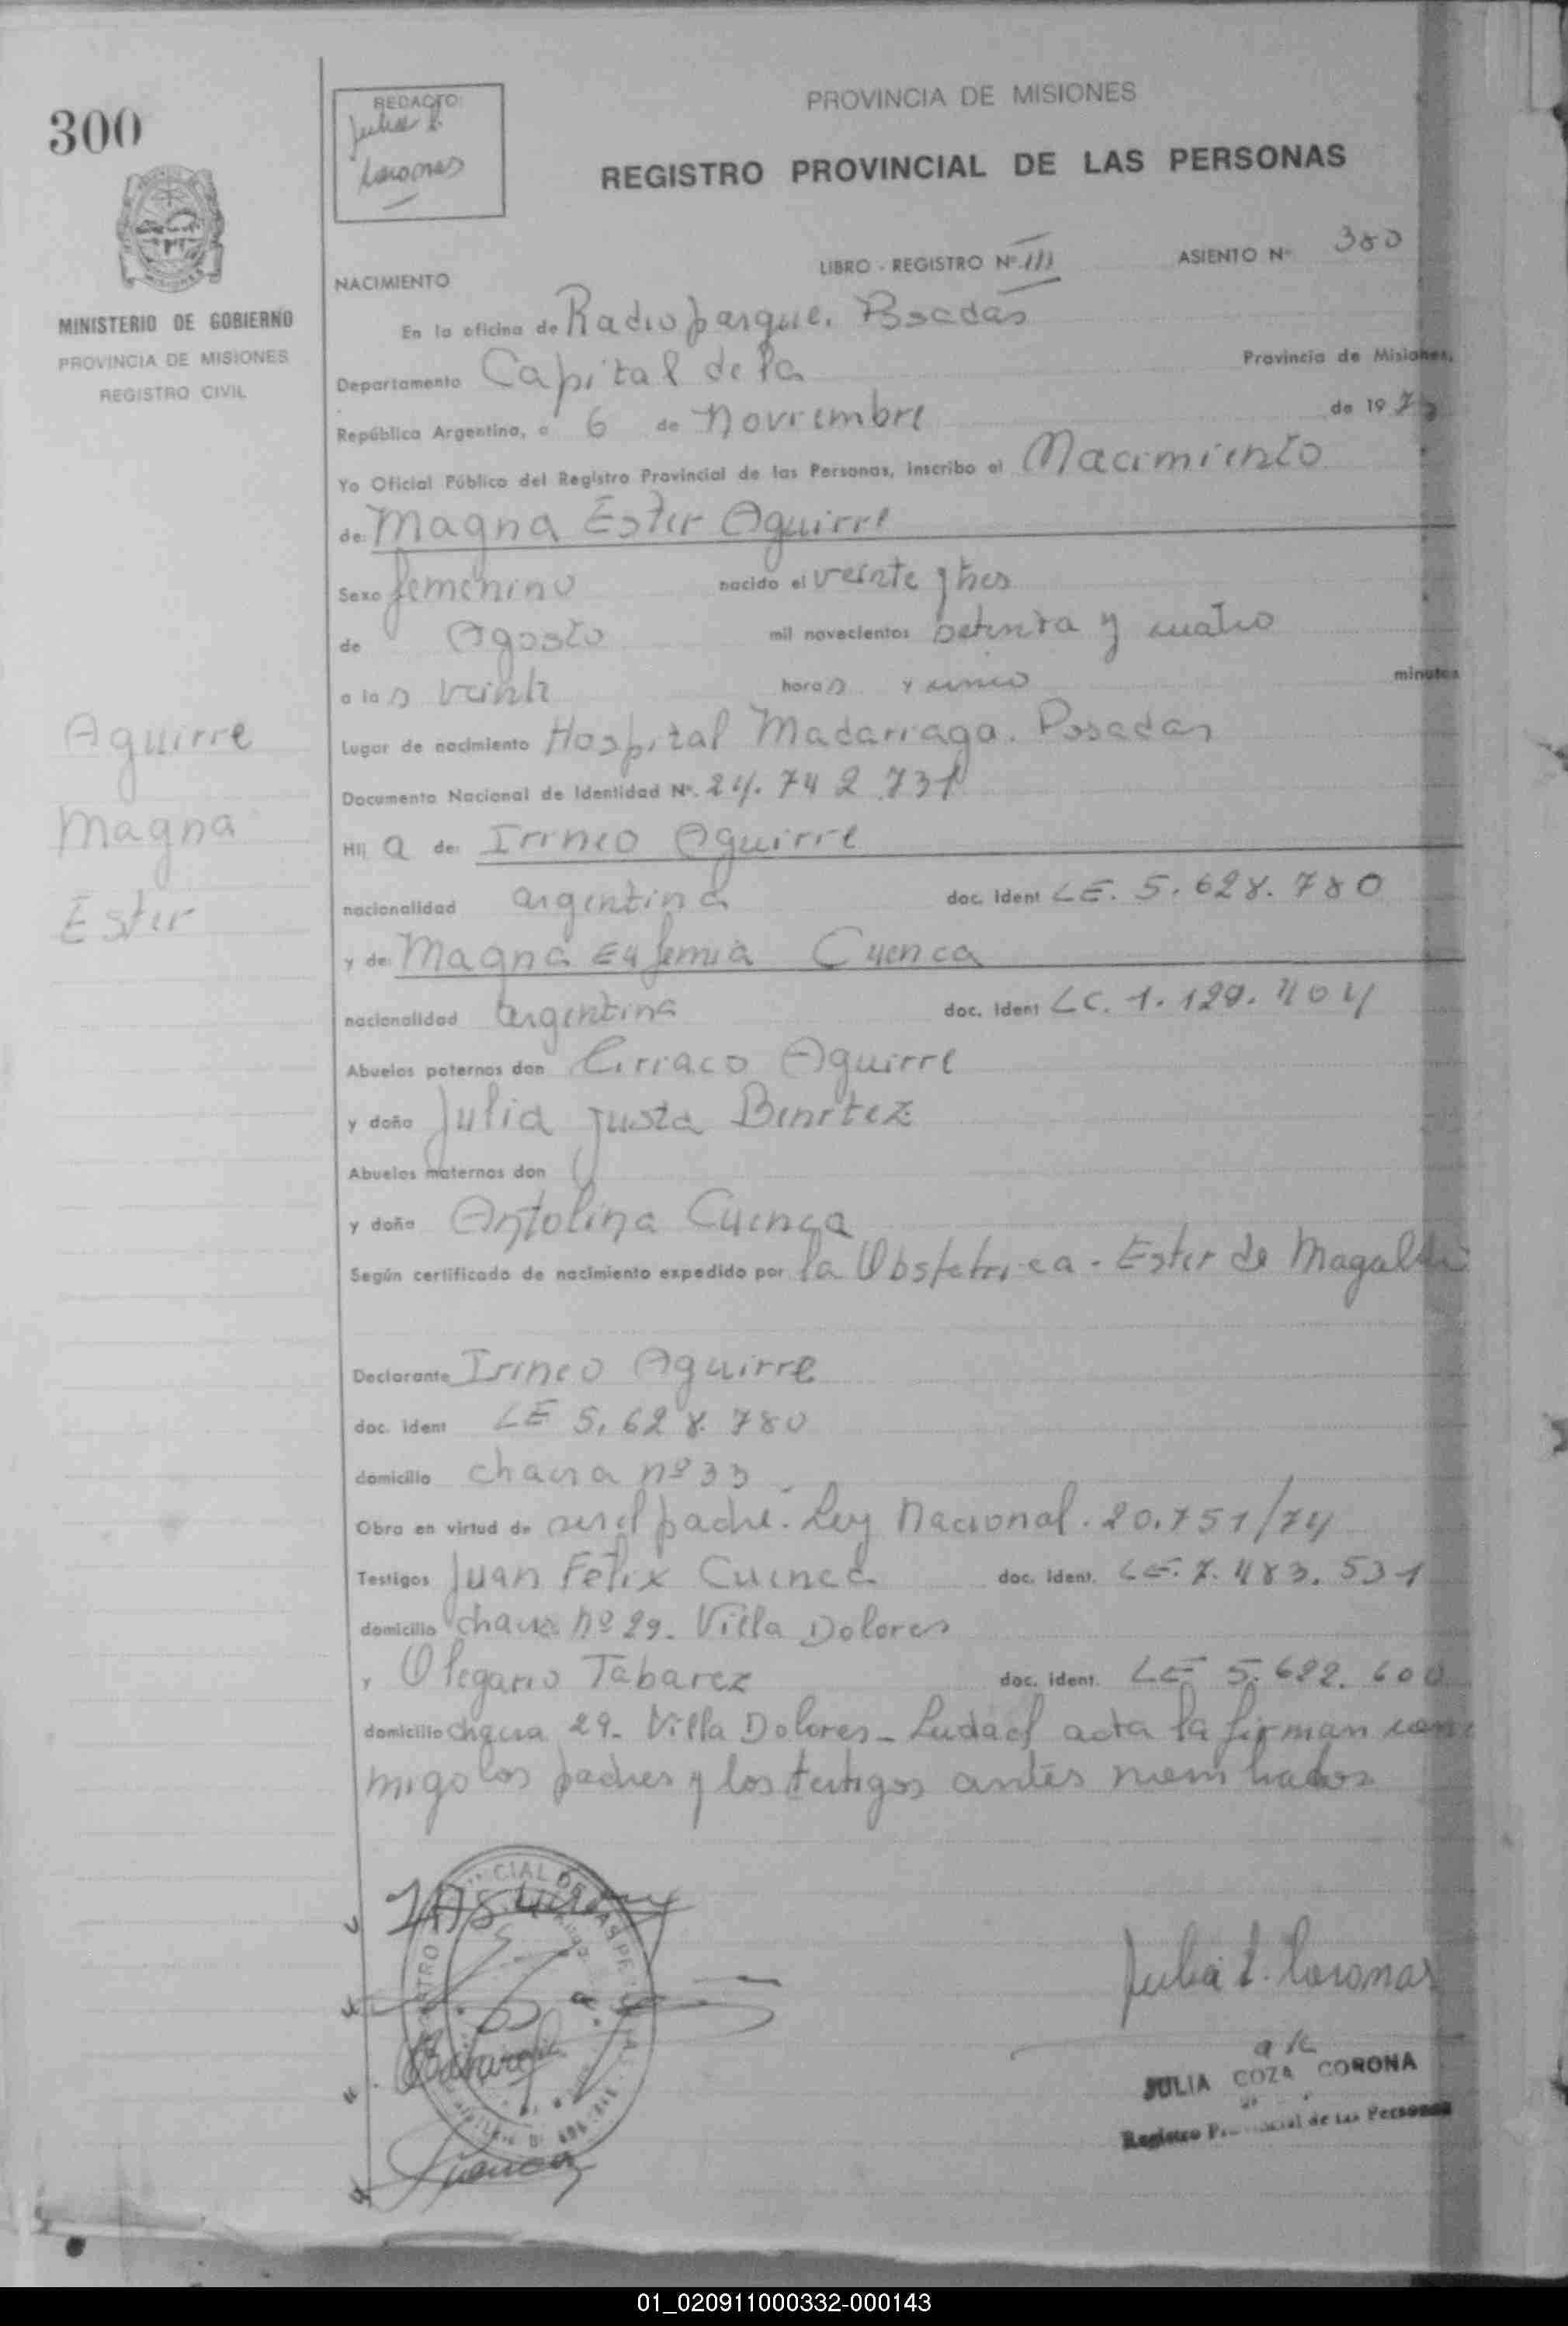 300
REDACTO:
Julia L.
Coronas
PROVINCIA DE MISIONES
REGISTRO PROVINCIAL DE LAS PERSONAS
LIBRO - REGISTRO Nº III
ASIENTO Nº 380
NACIMIENTO
MINISTERIO DE GOBIERNO
PROVINCIA DE MISIONES
REGISTRO CIVIL
En la oficina de Radioparque. Posadas
Departamento Capital de la Provincia de Misiones,
República Argentina, a 6 de Noviembre de 197
Yo Oficial Público del Registro Provincial de las Personas, inscribo el Nacimiento
de: Magna Ester Aguirre
Sexo femenino nacido el veinte y tres
de Agosto mil novecientos setenta y cuatro
a las veinte horas y cinco minutos
Lugar de nacimiento Hospital Madariaga. Posadas
Documento Nacional de Identidad Nº. 24. 742 731
Hija de: Irineo Aguirre
nacionalidad argentina doc. Ident LE. 5. 628. 780
y de: Magna Eufemia Cuenca
nacionalidad argentina doc. Ident LC. 1. 129. 404
Abuelos paternos don Ciriaco Aguirre
y doña Julia Justa Benitez
Abuelos maternos don
y doña Antolina Cuenca
Según certificado de nacimiento expedido por la Obstetrica - Ester de
Declarante Irineo Aguirre
doc. Ident LE 5. 628. 780
domicilio chacra nº 33
Obra en virtud de ser el padre. Ley Nacional. 20.751/74
Testigos Juan Felix Cuenca doc. Ident. LE. 7. 483. 531
domicilio chacra nº 29. Villa Dolores
y Olegario Tabarez doc. Ident. LE 5. 622. 600
domicilio chacra 29. Villa Dolores - acta la firman con
migo los padres y los testigos antes nombrados
Aguirre
Magna
Ester
Cuenca
Julia L. Coronas
a/c
JULIA COZA CORONA
Registro Provincial de las Personas
01_020911000332-000143